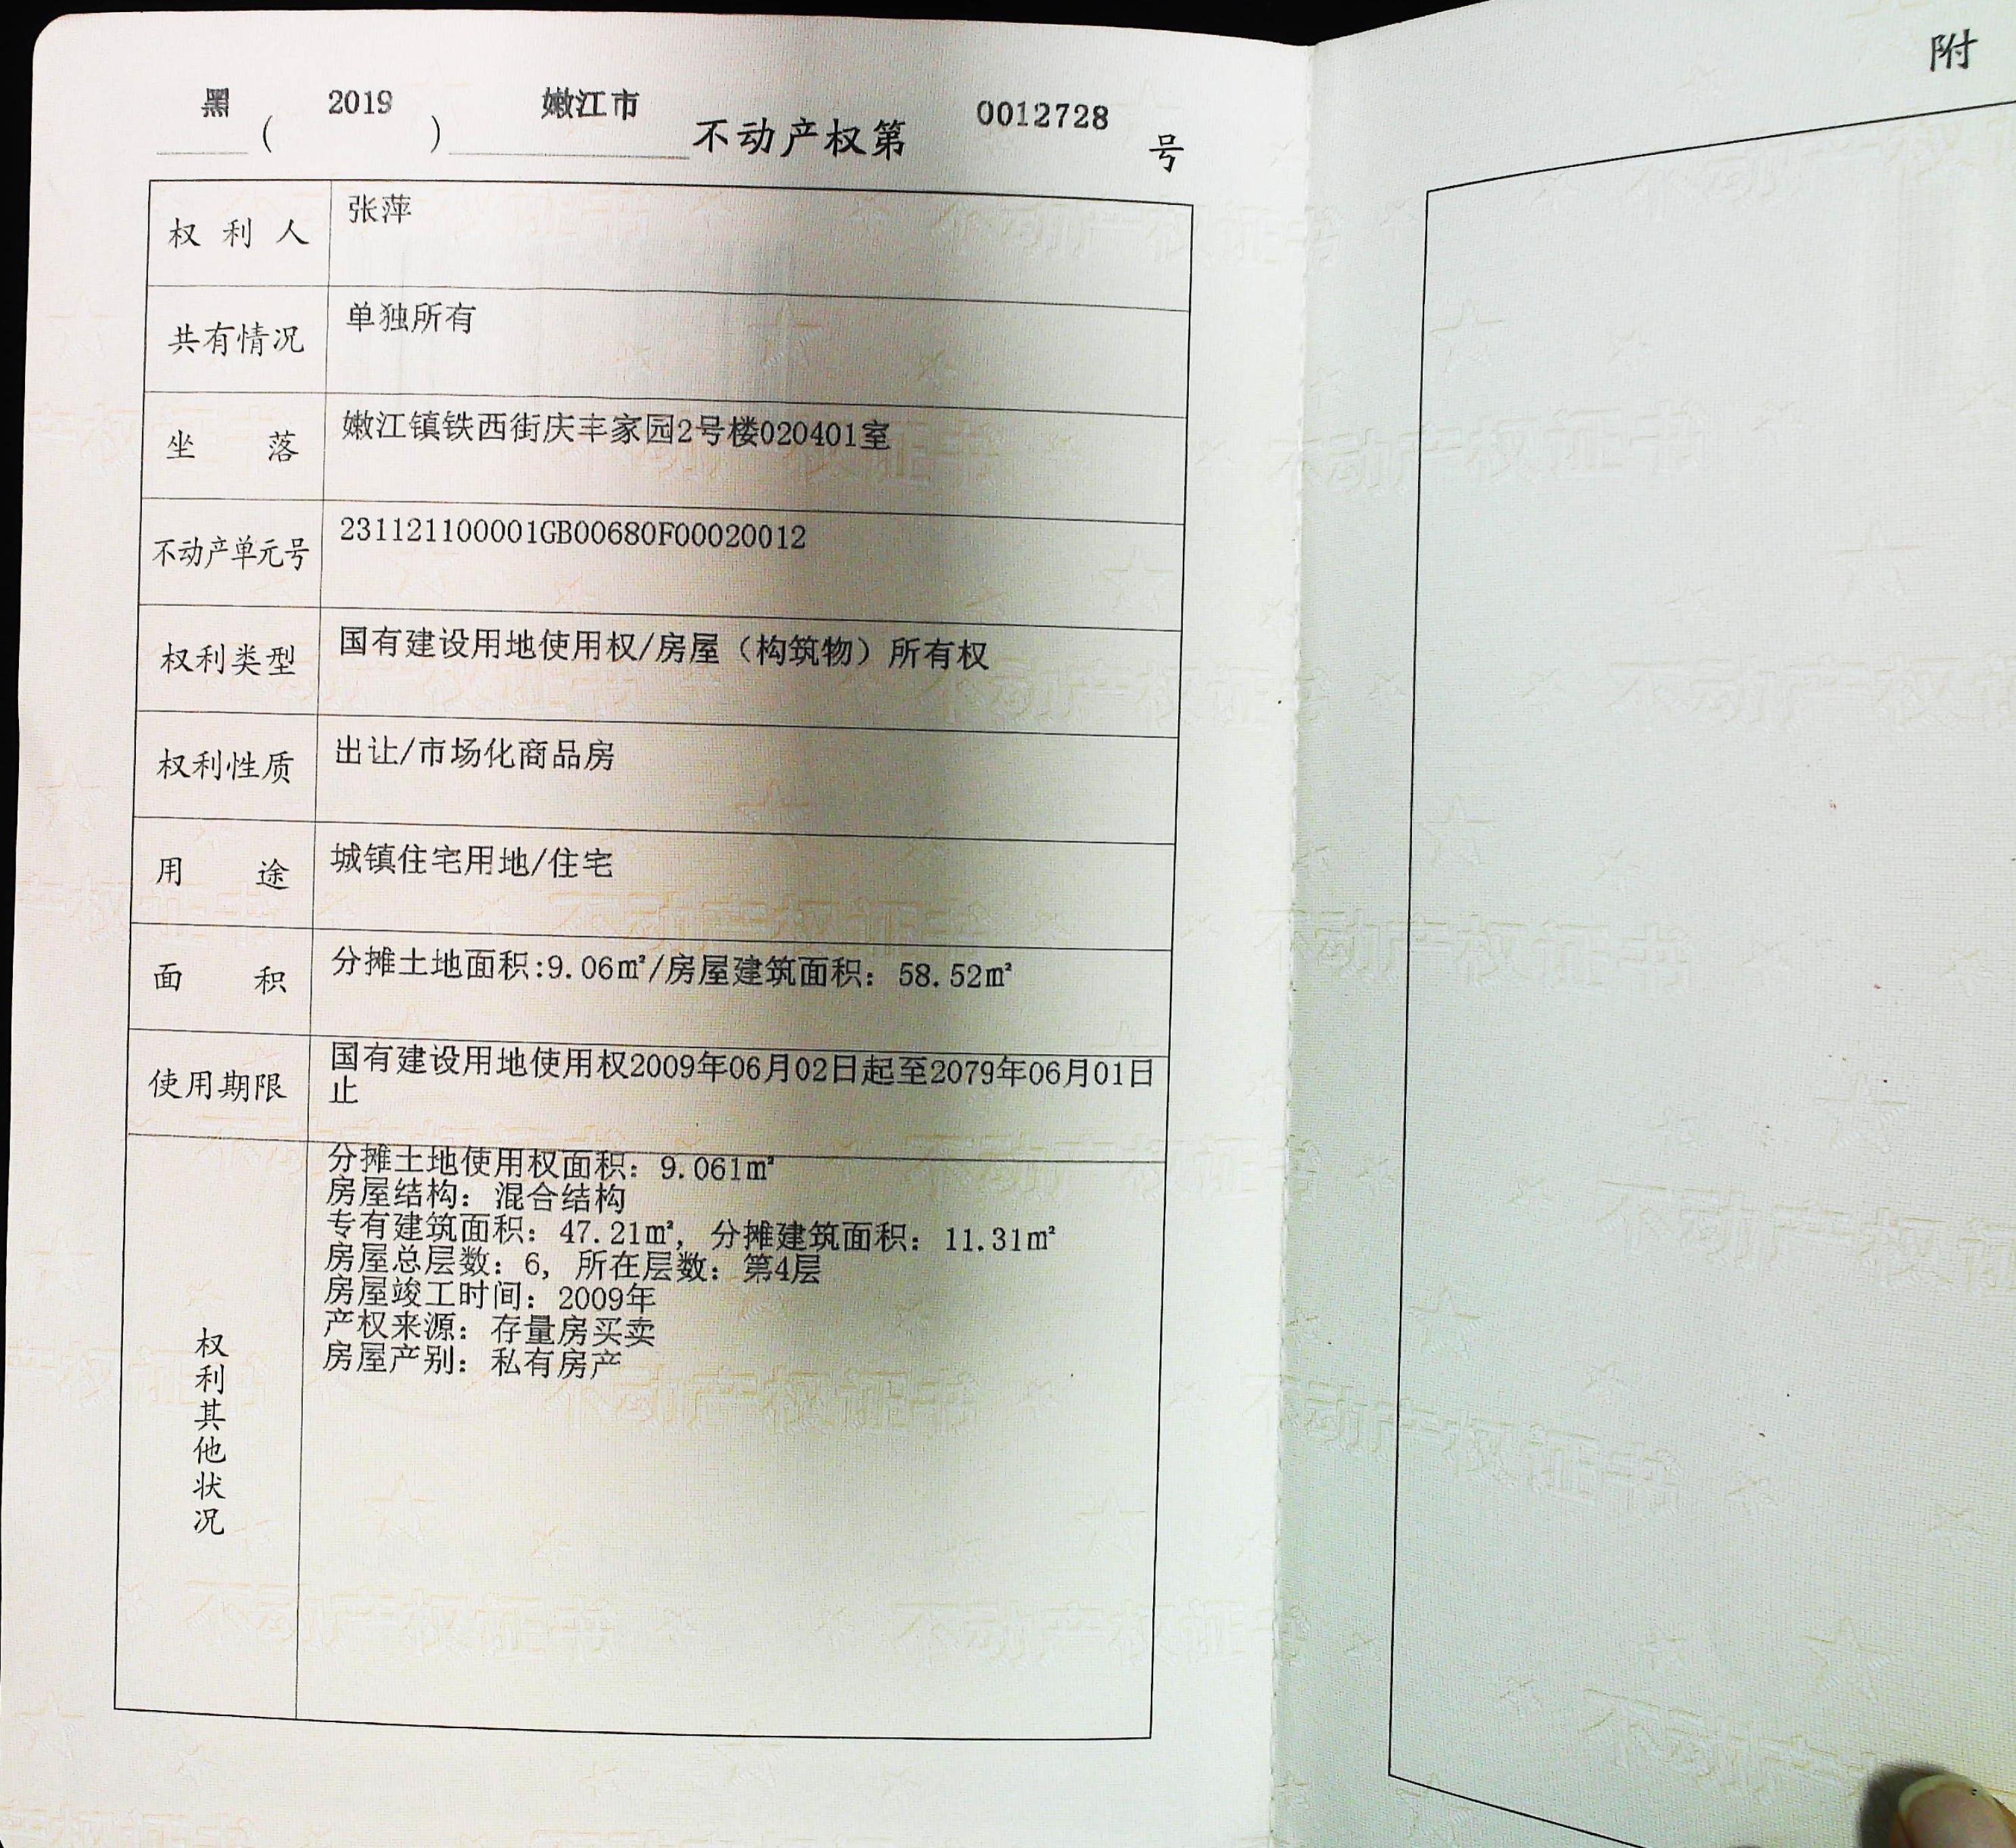 黑（2019）嫩江市不动产权第0012728号
权利人 张萍
共有情况 单独所有
坐落 嫩江镇铁西街庆丰家园2号楼020401室
不动产单元号 231121100001GB00680F00020012
权利类型 国有建设用地使用权/房屋（构筑物）所有权
权利性质 出让/市场化商品房
用途 城镇住宅用地/住宅
面积 分摊土地面积:9.06㎡/房屋建筑面积：58.52㎡
使用期限 国有建设用地使用权2009年06月02日起至2079年06月01日
止
权利其他状况
分摊土地使用权面积：9.061㎡
房屋结构：混合结构
专有建筑面积：47.21㎡，分摊建筑面积：11.31㎡
房屋总层数：6，所在层数：第4层
房屋竣工时间：2009年
产权来源：存量房买卖
房屋产别：私有房产
附